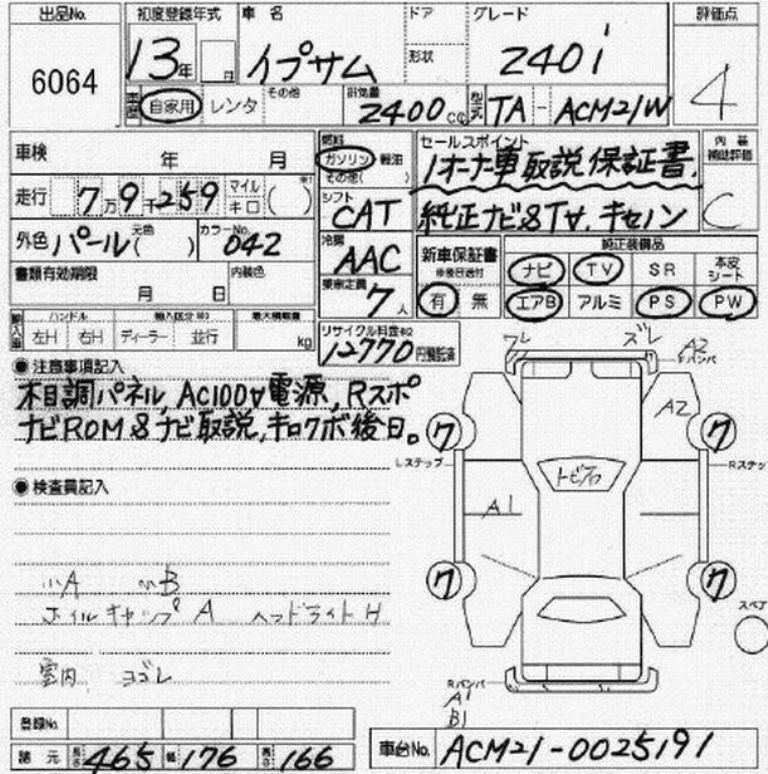 出品No. 6064
初度登録年式 13年 月
車名 イプサム
ドア
形状
グレード 240i
評価点 4
車歴 自家用 レンタ その他
排気量 2400cc
型式 TA-ACM21W
車検 年 月
燃料 ガソリン 軽油 その他( )
セールスポイント
1オーナー車 取説 保証書.
純正ナビ&TV. キセノン
内装補助評価 C
走行 7万9千259 マイル キロ ( )
シフト CAT
外色 パール 元色( ) カラーNo. 042
冷房 AAC
新車保証書 ※後日送付 有 無
純正装備品
ナビ TV SR 本皮シート
エアB アルミ PS PW
書類有効期限 月 日 内装色
乗車定員 7人
輸入車 ハンドル 左H 右H 輸入区分 ディーラー 並行 最大積載量 kg
リサイクル料金 12770 円預託済
●注意事項記入
木目調パネル, AC100V電源, Rスポ
ナビROM&ナビ取説, キロクボ後日。
ワレ ズレ A2 Fバンパ
A2
ワ ワ
Lステップ Rステップ
トビ
●検査員記入
A1
小A 小B
ホイルキャップ A ヘッドライト H
ワ ワ
スペア
室内 ヨゴレ
Rバンパ
A1
B1
登録No.
諸元 長さ 465 幅 176 高さ 166
車台No. ACM21-0025191